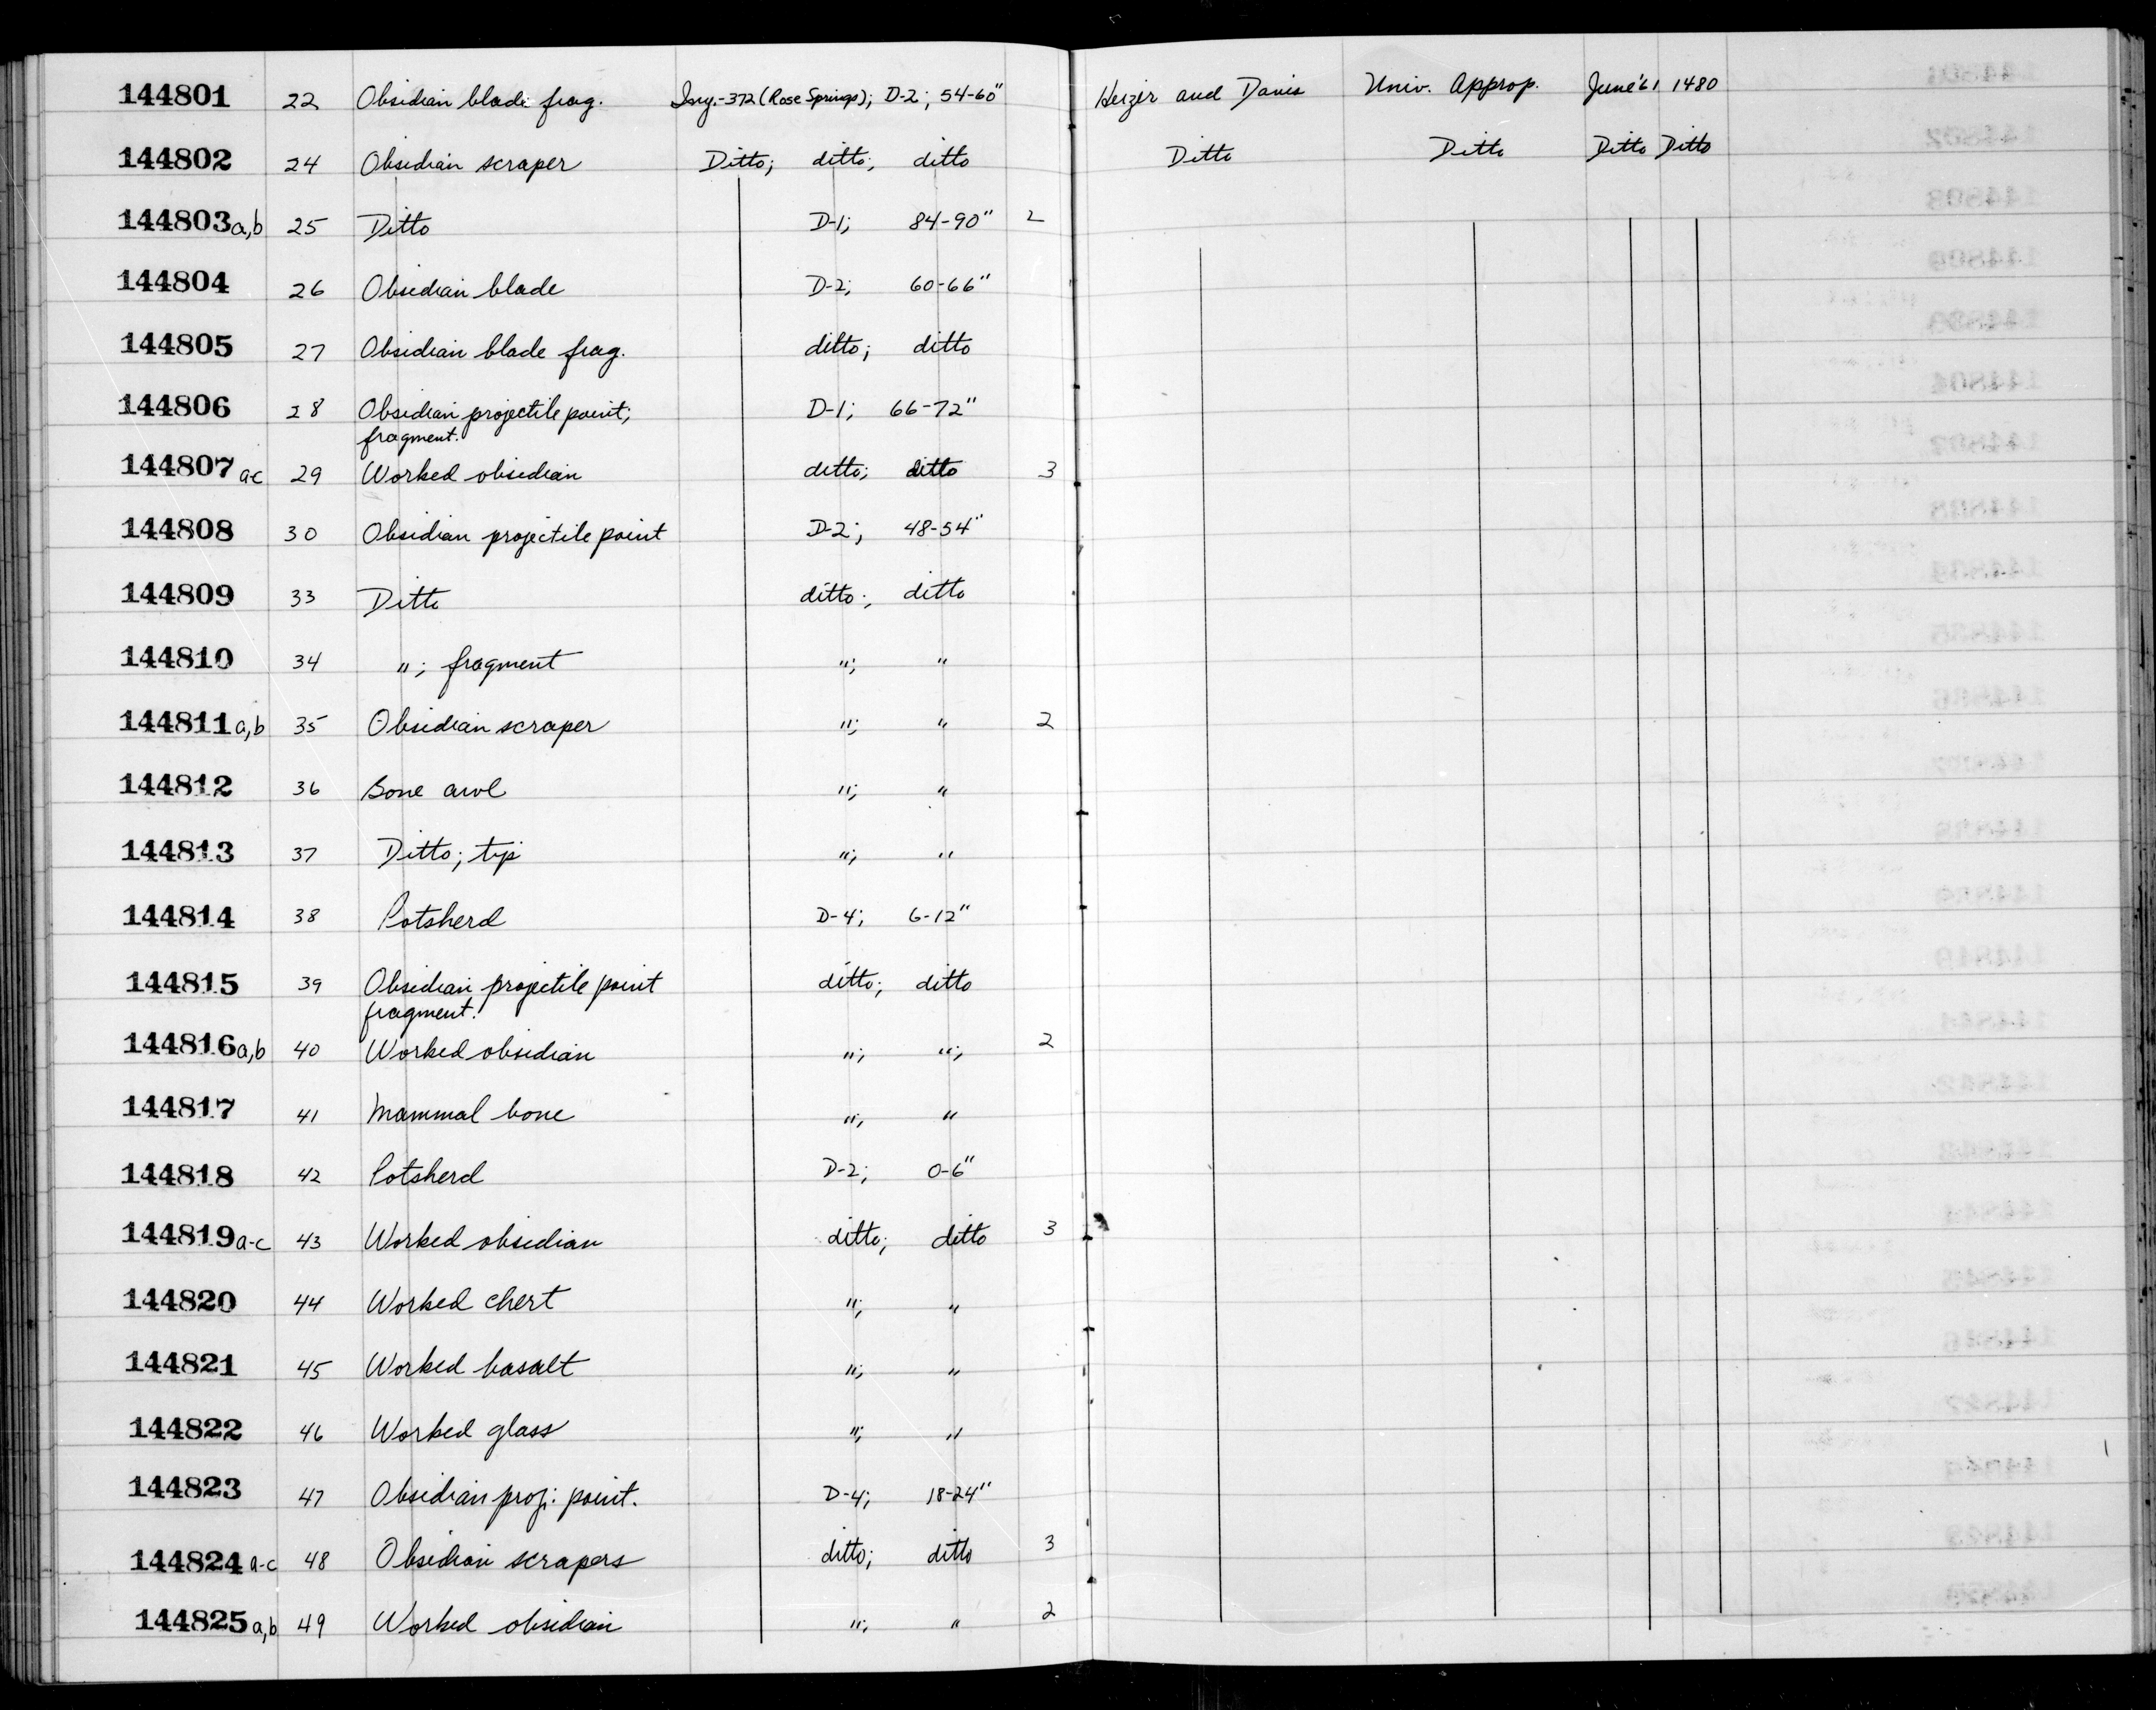 144801 22 Obsidian blade frag. Iny.-372 (Rose Springs); D-2; 54-60" Heizer and Davis Univ. Approp. June '61 1480
144802 24 Obsidian scraper Ditto; ditto; ditto Ditto Ditto Ditto Ditto
144803 a,b 25 Ditto D-1; 84-90" 2
144804 26 Obsidian blade D-2; 60-66"
144805 27 Obsidian blade frag. ditto; ditto
144806 28 Obsidian projectile point; D-1; 66-72"
fragment.
144807 a-c 29 Worked obsidian ditto; ditto 3
144808 30 Obsidian projectile point D-2; 48-54"
144809 33 Ditto ditto; ditto
144810 34 "; fragment "; "
144811 a,b 35 Obsidian scraper "; " 2
144812 36 Bone awl "; "
144813 37 Ditto; tip "; "
144814 38 Potsherd D-4; 6-12"
144815 39 Obsidian projectile point ditto; ditto
fragment.
144816 a,b 40 Worked obsidian "; "; 2
144817 41 Mammal bone "; "
144818 42 Potsherd D-2; 0-6"
144819 a-c 43 Worked obsidian ditto; ditto 3
144820 44 Worked chert "; "
144821 45 Worked basalt "; "
144822 46 Worked glass "; "
144823 47 Obsidian proj. point. D-4; 18-24"
144824 a-c 48 Obsidian scrapers ditto; ditto 3
144825 a,b 49 Worked obsidian "; " 2